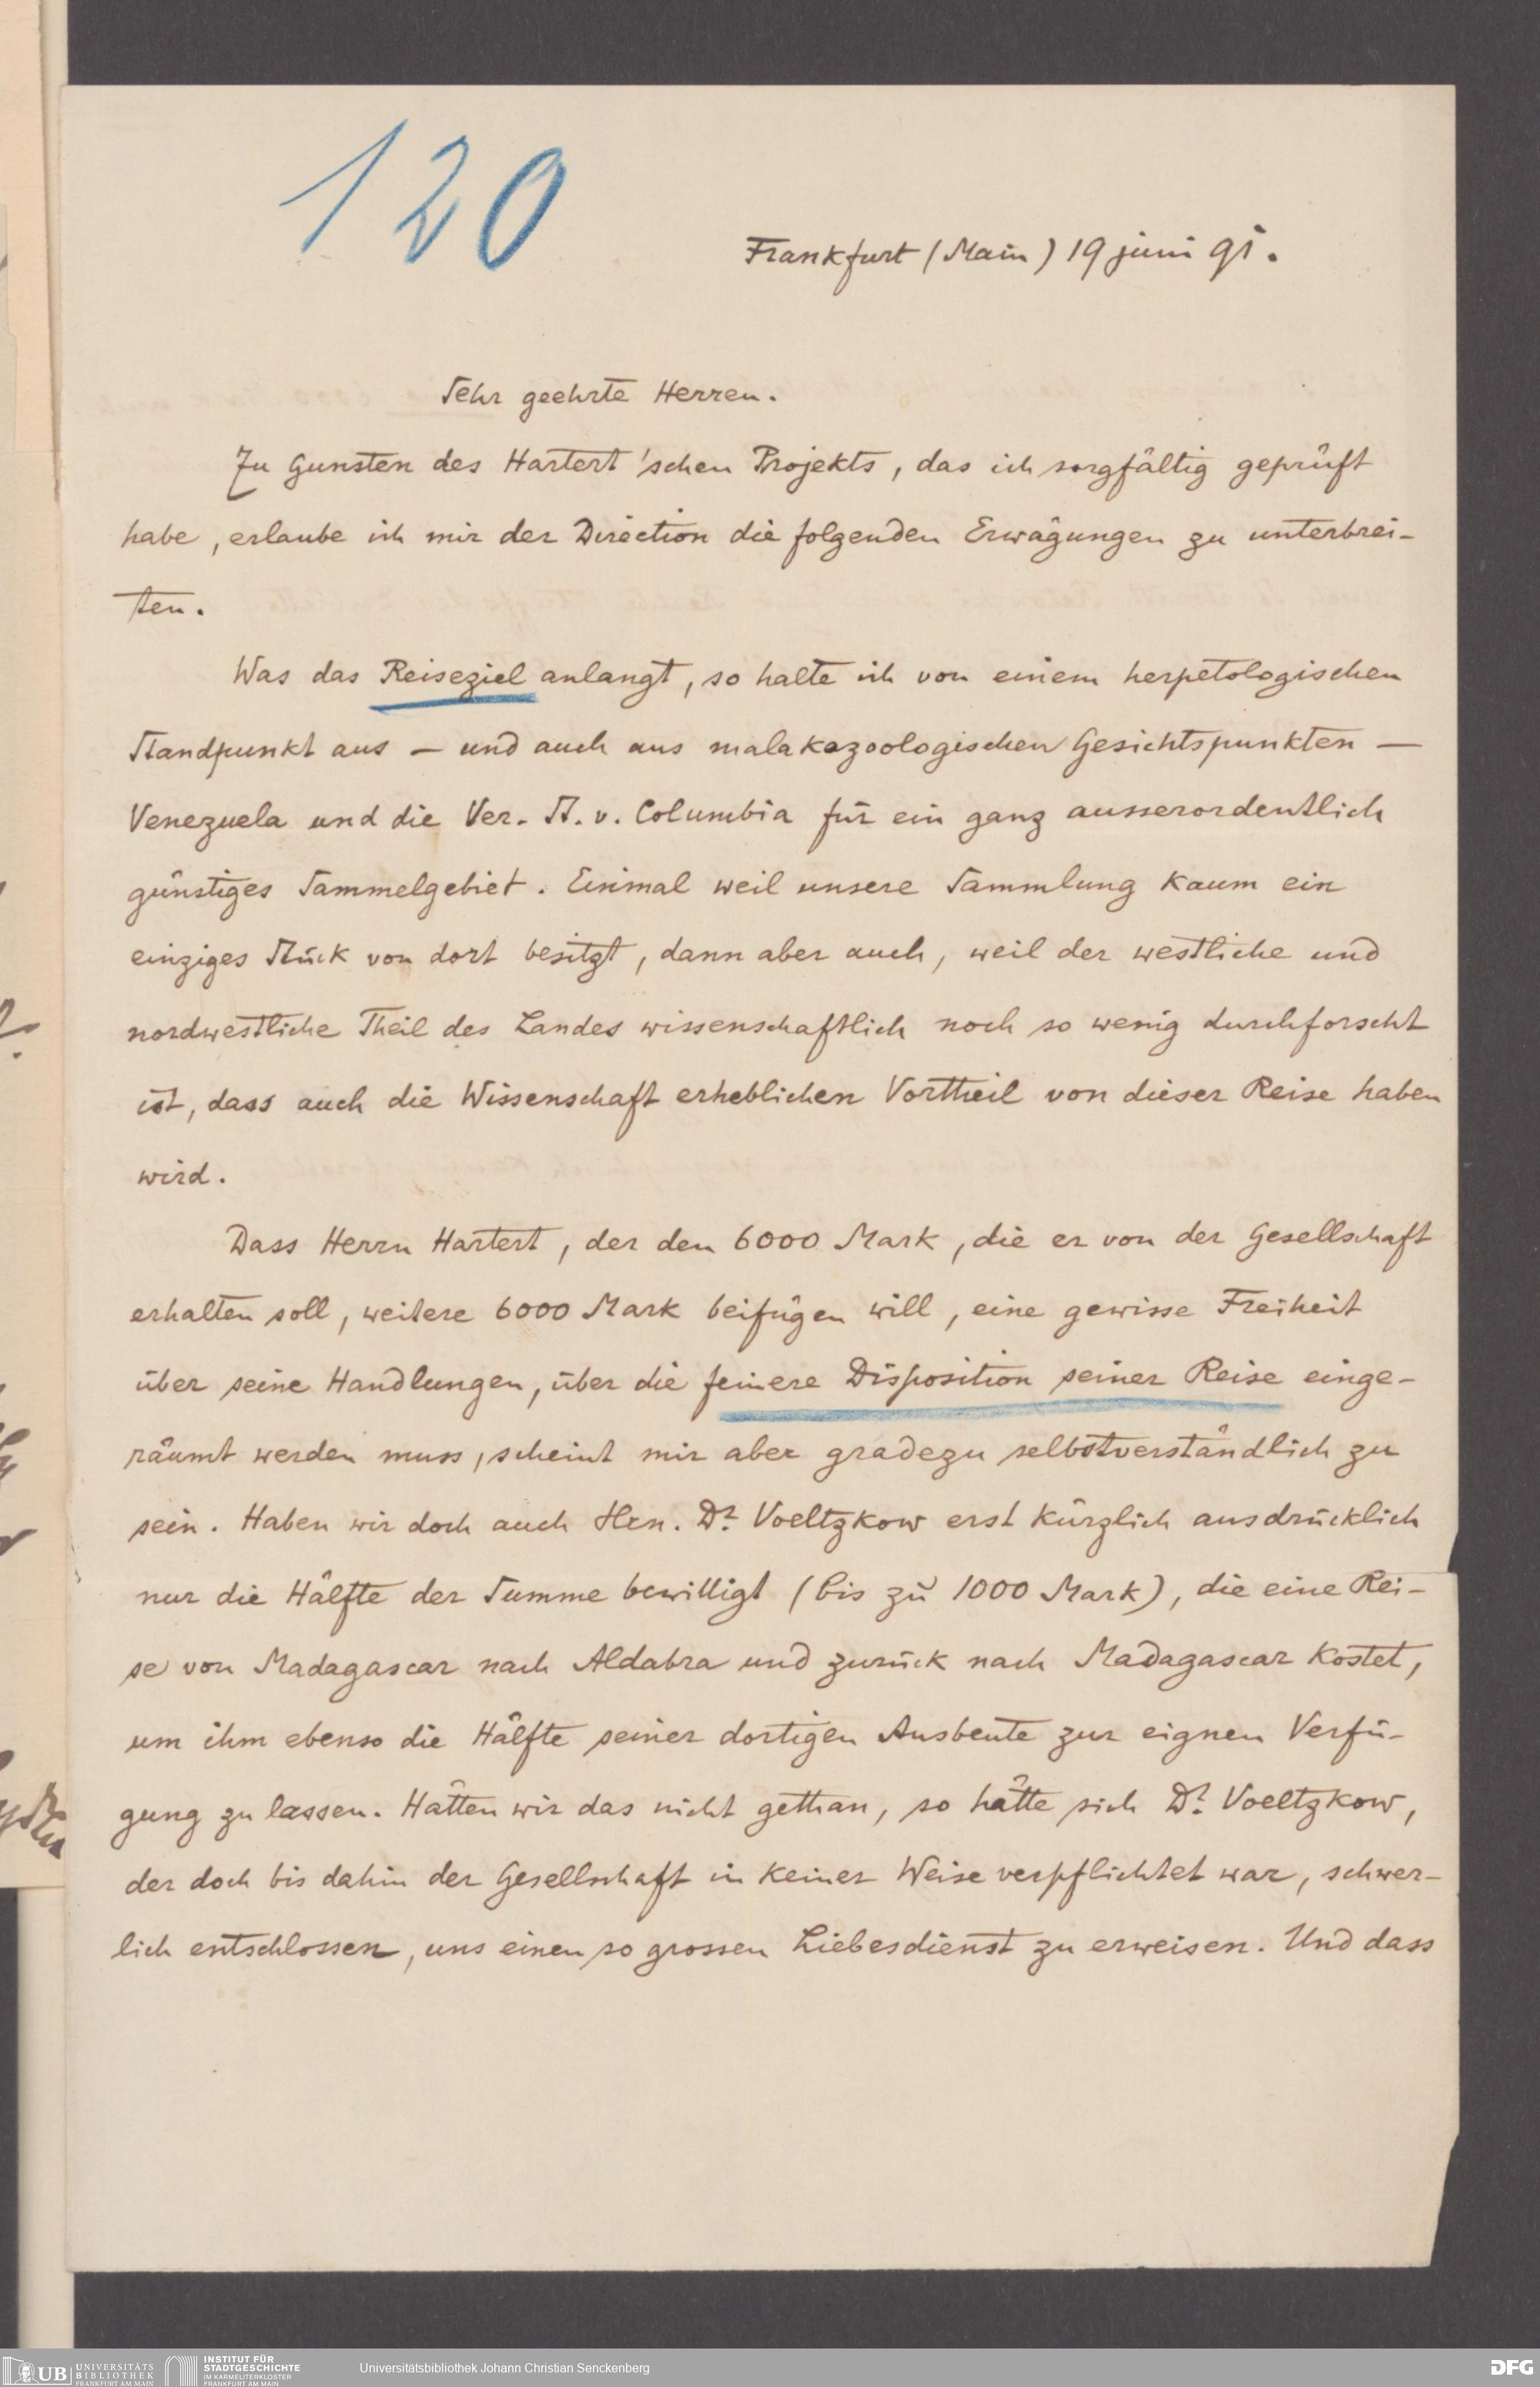 120
Frankfurt (Main) 19 juni 91.
Sehr geehrte Herren.
Zu Gunsten des Hartert'schen Projekts, das ich sorgfältig geprüft
habe, erlaube ich mir der Direction die folgenden Erwägungen zu unterbrei-
ten.
Was das Reiseziel anlangt, so halte ich von einem herpetologischen
Standpunkt aus – und auch aus malakozoologischen Gesichtspunkten –
Venezuela und die Ver. St. v. Columbia für ein ganz ausserordentlich
günstiges Sammelgebiet. Einmal weil unsere Sammlung kaum ein
einziges Stück von dort besitzt, dann aber auch, weil der westliche und
nordwestliche Theil des Landes wissenschaftlich noch so wenig durchforscht
ist, dass auch die Wissenschaft erheblichen Vortheil von dieser Reise haben
wird.
Dass Herrn Hartert, der den 6000 Mark, die er von der Gesellschaft
erhalten soll, weitere 6000 Mark beifügen will, eine gewisse Freiheit
über seine Handlungen, über die feinere Disposition seiner Reise einge-
räumt werden muss, scheint mir aber gradezu selbstverständlich zu
sein. Haben wir doch auch Hrn. Dr. Voeltzkow erst kürzlich ausdrücklich
nur die Hälfte der Summe bewilligt (bis zu 1000 Mark), die eine Rei-
se von Madagascar nach Aldabra und zurück nach Madagascar kostet,
um ihm ebenso die Hälfte seiner dortigen Ausbeute zur eignen Verfü-
gung zu lassen. Hätten wir das nicht gethan, so hätte sich Dr. Voeltzkow,
der doch bis dahin der Gesellschaft in keiner Weise verpflichtet war, schwer-
lich entschlossen, uns einen so grossen Liebesdienst zu erweisen. Und dass
UB UNIVERSITÄTS
BIBLIOTHEK
FRANKFURT AM MAIN
INSTITUT FÜR
STADTGESCHICHTE
IM KARMELITERKLOSTER
FRANKFURT AM MAIN
Universitätsbibliothek Johann Christian Senckenberg
DFG